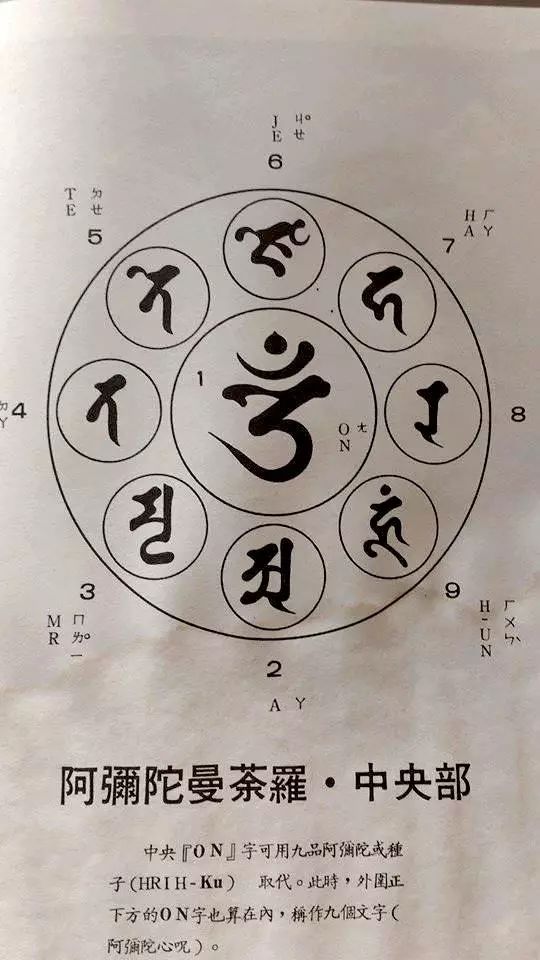 JE ㄐ°ㄝ
6
TE ㄉㄝ
5
HA ㄏㄚ
7
1
4
ON ㄤ
8
3
MR ㄇㄌ°ㄧ
9
H-UN ㄏㄨㄣ
2
A ㄚ
阿彌陀曼荼羅・中央部
中央『ON』字可用九品阿彌陀或種
子(HRIH-Ku) 取代。此時，外圍正
下方的ON字也算在內，稱作九個文字(
阿彌陀心呪)。